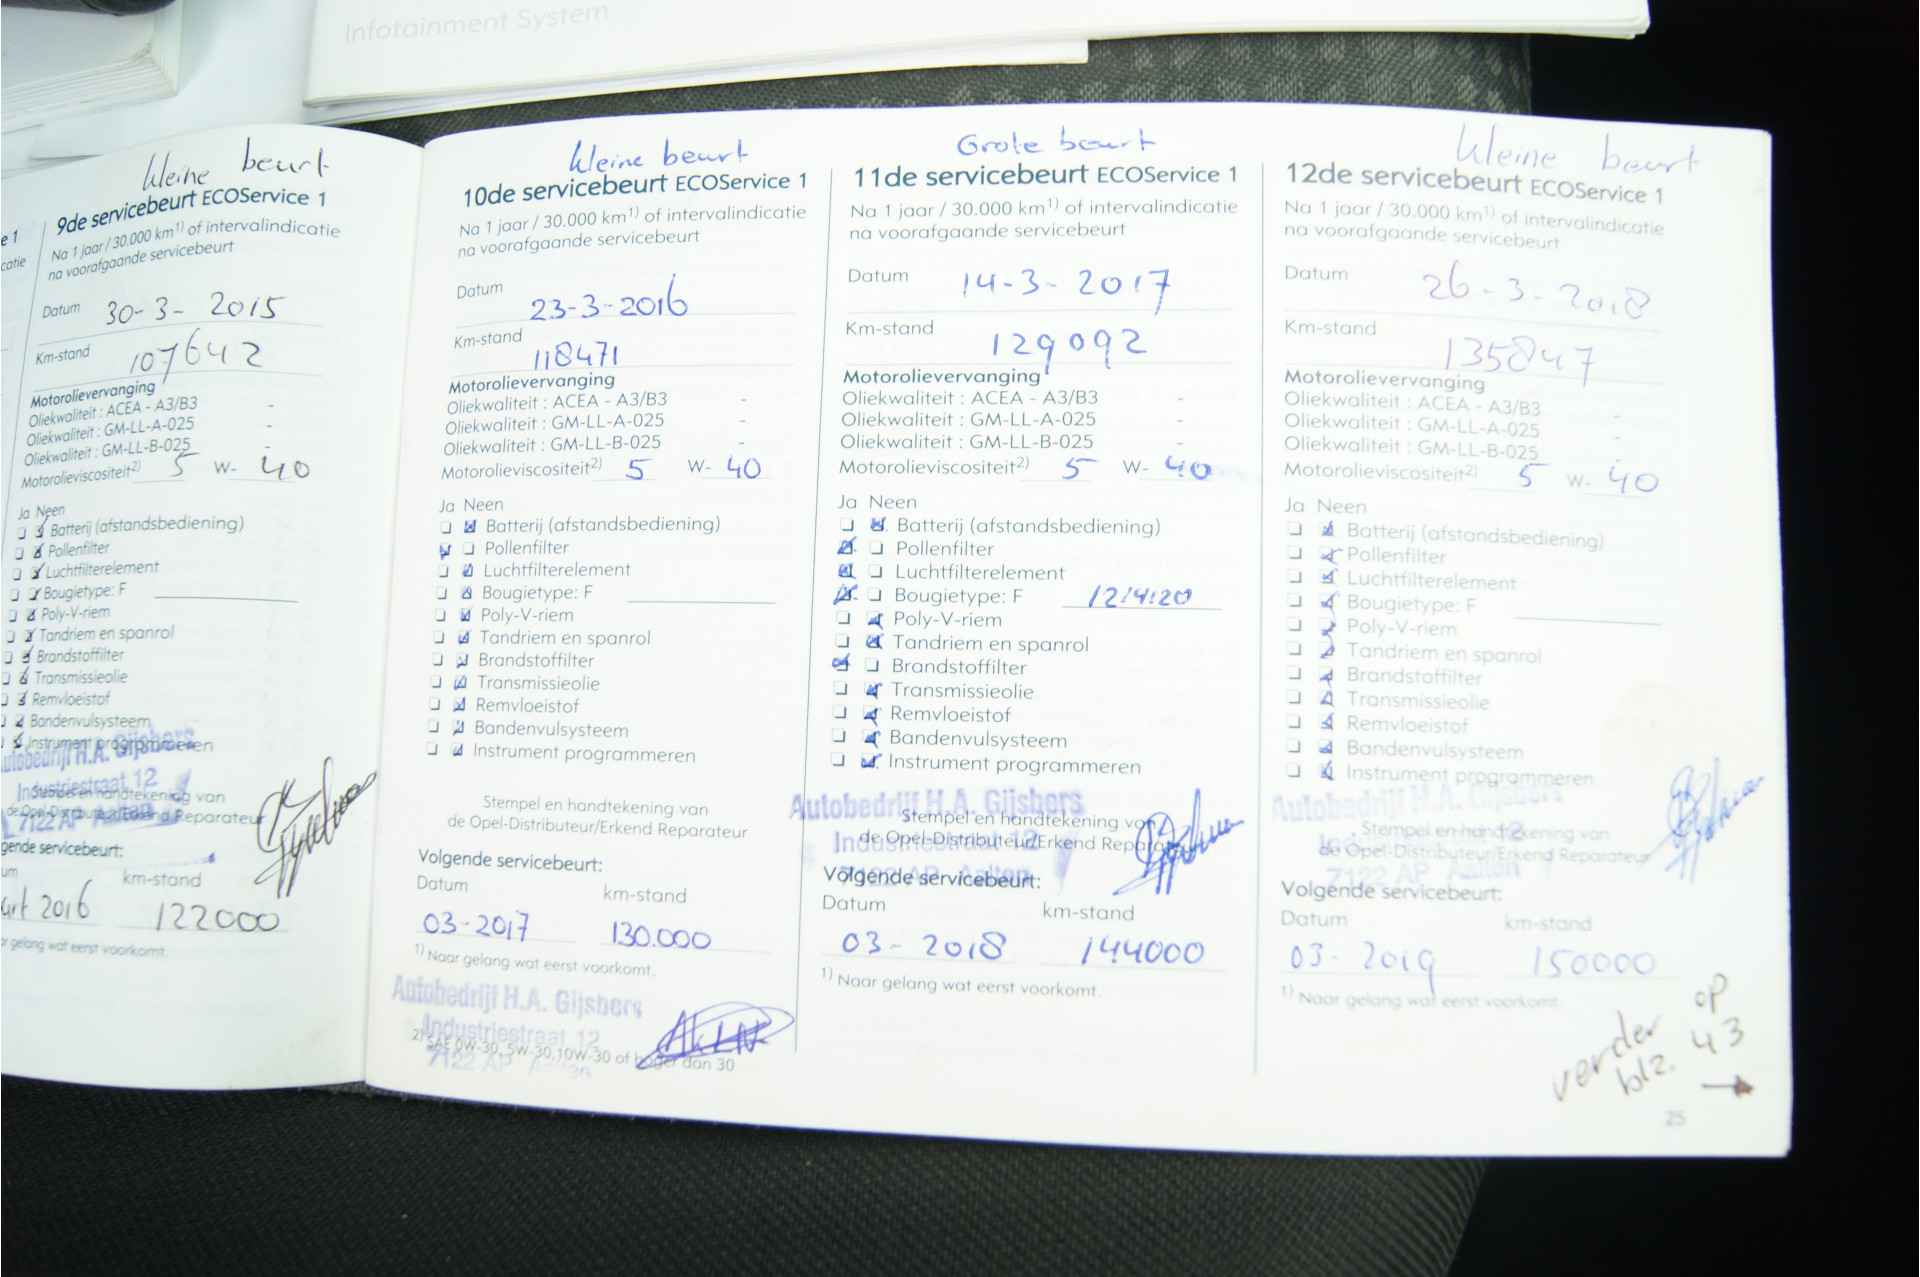 Infotainment System
e 1
catie
kleine beurt
9de servicebeurt ECOService 1
Na 1 jaar / 30.000 km1) of intervalindicatie
na voorafgaande servicebeurt
Datum 30-3-2015
Km-stand 107642
Motorolievervanging
Oliekwaliteit : ACEA - A3/B3 -
Oliekwaliteit : GM-LL-A-025 -
Oliekwaliteit : GM-LL-B-025
Motorolieviscositeit2) 5 W- 40
Ja Neen
Batterij (afstandsbediening)
Pollenfilter
Luchtfilterelement
Bougietype: F
Poly-V-riem
Tandriem en spanrol
Brandstoffilter
Transmissieolie
Remvloeistof
Bandenvulsysteem
Instrument programmeren
utobedrijf H.A. Gijsbers
Industriestraat 12
7122 AP Aalten
Stempel en handtekening van
de Opel-Distributeur/Erkend Reparateur
gende servicebeurt:
um km-stand
art 2016 122000
ar gelang wat eerst voorkomt.
kleine beurt
10de servicebeurt ECOService 1
Na 1 jaar / 30.000 km1) of intervalindicatie
na voorafgaande servicebeurt
Datum 23-3-2016
Km-stand 118471
Motorolievervanging
Oliekwaliteit : ACEA - A3/B3 -
Oliekwaliteit : GM-LL-A-025 -
Oliekwaliteit : GM-LL-B-025 -
Motorolieviscositeit2) 5 W- 40
Ja Neen
Batterij (afstandsbediening)
Pollenfilter
Luchtfilterelement
Bougietype: F
Poly-V-riem
Tandriem en spanrol
Brandstoffilter
Transmissieolie
Remvloeistof
Bandenvulsysteem
Instrument programmeren
Stempel en handtekening van
de Opel-Distributeur/Erkend Reparateur
Volgende servicebeurt:
Datum km-stand
03-2017 130.000
1) Naar gelang wat eerst voorkomt.
Autobedrijf H.A. Gijsbers
Industriestraat 12
7122 AP Aalten
2) SAE 0W-30, 5W-30, 10W-30 of hoger dan 30
Grote beurt
11de servicebeurt ECOService 1
Na 1 jaar / 30.000 km1) of intervalindicatie
na voorafgaande servicebeurt
Datum 14-3-2017
Km-stand 129092
Motorolievervanging
Oliekwaliteit : ACEA - A3/B3 -
Oliekwaliteit : GM-LL-A-025 -
Oliekwaliteit : GM-LL-B-025 -
Motorolieviscositeit2) 5 W- 40
Ja Neen
Batterij (afstandsbediening)
Pollenfilter
Luchtfilterelement
Bougietype: F 1214120
Poly-V-riem
Tandriem en spanrol
Brandstoffilter
Transmissieolie
Remvloeistof
Bandenvulsysteem
Instrument programmeren
Autobedrijf H.A. Gijsbers
Industriestraat 12
7122 AP Aalten
Stempel en handtekening van
de Opel-Distributeur/Erkend Reparateur
Volgende servicebeurt:
Datum km-stand
03-2018 144000
1) Naar gelang wat eerst voorkomt.
kleine beurt
12de servicebeurt ECOService 1
Na 1 jaar / 30.000 km1) of intervalindicatie
na voorafgaande servicebeurt
Datum 26-3-2018
Km-stand 135847
Motorolievervanging
Oliekwaliteit : ACEA - A3/B3 -
Oliekwaliteit : GM-LL-A-025 -
Oliekwaliteit : GM-LL-B-025 -
Motorolieviscositeit2) 5 W- 40
Ja Neen
Batterij (afstandsbediening)
Pollenfilter
Luchtfilterelement
Bougietype: F
Poly-V-riem
Tandriem en spanrol
Brandstoffilter
Transmissieolie
Remvloeistof
Bandenvulsysteem
Instrument programmeren
Autobedrijf H.A. Gijsbers
7122 AP Aalten
Stempel en handtekening van
de Opel-Distributeur/Erkend Reparateur
Volgende servicebeurt:
Datum km-stand
03-2019 150000
1) Naar gelang wat eerst voorkomt.
verder op
blz. 43
25